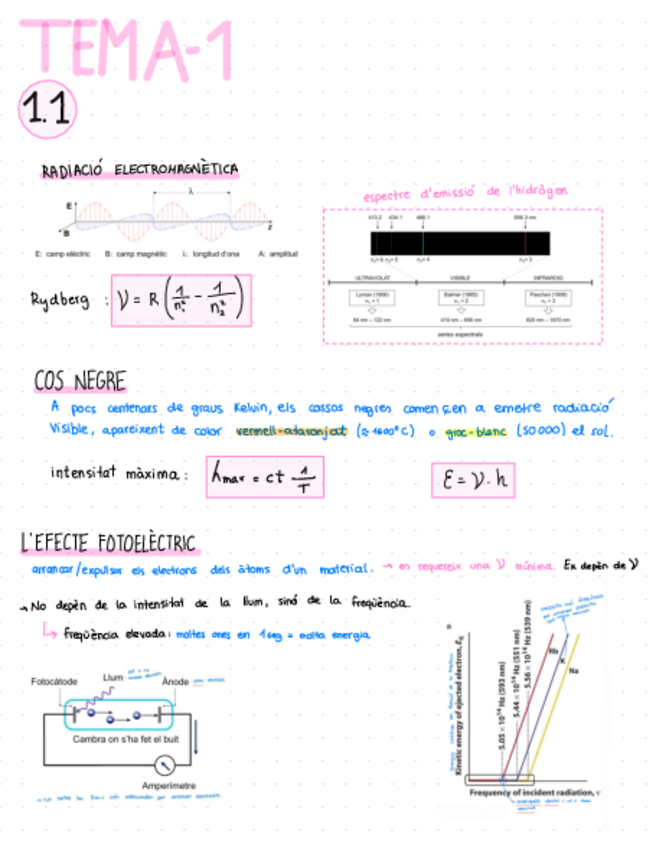 TEMA-1
1.1
RADIACIÓ ELECTROMAGNÈTICA
λ
E
B
z
E: camp elèctric B: camp magnètic λ: longitud d'ona A: amplitud
Rydberg : ν = R (1/n₁² - 1/n₂²)
espectre d'emissió de l'hidrògen
410.2 434.1 486.1 656.3 nm
n₂= 6 n₂= 5 n₂= 4 n₂= 3
ULTRAVIOLAT VISIBLE INFRAROIG
Lyman (1906) Balmer (1885) Paschen (1908)
n₁ = 1 n₁ = 2 n₁ = 3
94 nm – 122 nm 410 nm – 656 nm 820 nm – 1870 nm
series espectrals
COS NEGRE
A pocs centenars de graus Kelvin, els cossos negres comencen a emetre radiació
Visible, apareixent de color vermell-ataronjat (≈ 1600°C) o groc-blanc (50000) el sol.
intensitat màxima : λmax = ct 1/T
E = ν · h
L'EFECTE FOTOELÈCTRIC
arrancar/expulsar els electrons dels àtoms d'un material. → es requereix una ν mínima. Ek depèn de ν
→ No depèn de la intensitat de la llum, sinó de la freqüència.
↳ freqüència elevada: moltes ones en 1 seg = molta energia
Fotocàtode Llum Ànode
Cambra on s'ha fet el buit
Amperímetre
Kinetic energy of ejected electron, Eₖ
5.05 × 10¹⁴ Hz (593 nm)
5.44 × 10¹⁴ Hz (551 nm)
5.56 × 10¹⁴ Hz (539 nm)
Rb
K
Na
0
Frequency of incident radiation, ν